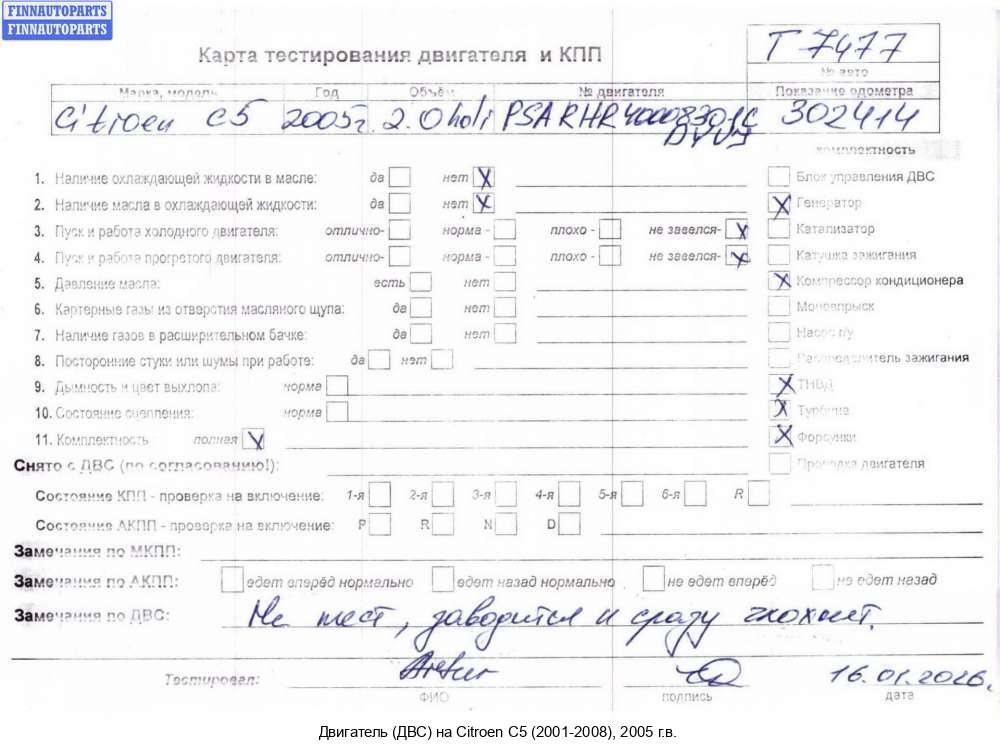 FINNAUTOPARTS
FINNAUTOPARTS
Карта тестирования двигателя и КПП
T 7477
№ авто
Марка, модель Год Объём № двигателя Показание одометра
Citroen C5 2005г. 2.0 hdi PSARHR 302414
комплектность
1. Наличие охлаждающей жидкости в масле: да нет X Блок управления ДВС
2. Наличие масла в охлаждающей жидкости: да нет X X Генератор
3. Пуск и работа холодного двигателя: отлично- норма - плохо - не завелся- X Катализатор
4. Пуск и работа прогретого двигателя: отлично- норма - плохо - не завелся- X Катушка зажигания
5. Давление масла: есть нет X Компрессор кондиционера
6. Картерные газы из отверстия масляного щупа: да нет Моновпрыск
7. Наличие газов в расширительном бачке: да нет Насос г/у
8. Посторонние стуки или шумы при работе: да нет Распределитель зажигания
9. Дымность и цвет выхлопа: норма X ТНВД
10. Состояние сцепления: норма X Турбина
11. Комплектность полная V X Форсунки
Снято с ДВС (по согласованию!): Проводка двигателя
Состояние КПП - проверка на включение: 1-я 2-я 3-я 4-я 5-я 6-я R
Состояние АКПП - проверка на включение: P R N D
Замечания по МКПП:
Замечания по АКПП: едет вперёд нормально едет назад нормально не едет вперёд не едет назад
Замечания по ДВС: Не тест, заводится и сразу глохнет.
Тестировал: Artur 16.01.2026.
ФИО подпись дата
Двигатель (ДВС) на Citroen C5 (2001-2008), 2005 г.в.